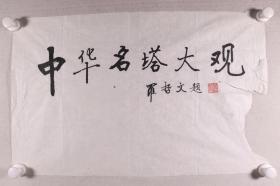 中华名塔大观
罗哲文题